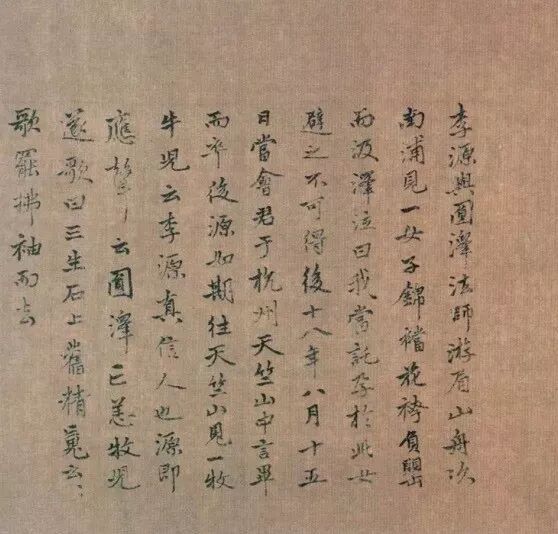 李源與圓澤法師游眉山舟次
南浦見一女子錦襠花袴負罌
而汲澤泣曰我當託孕於此女
避之不可得後十八年八月十五
日當會君于杭州天竺山中言畢
而卒後源如期往天竺山見一牧
牛兒云李源真信人也源即
應聲云圓澤已恙牧兒
遂歌曰三生石上舊精䰟云〻
歌罷拂袖而去